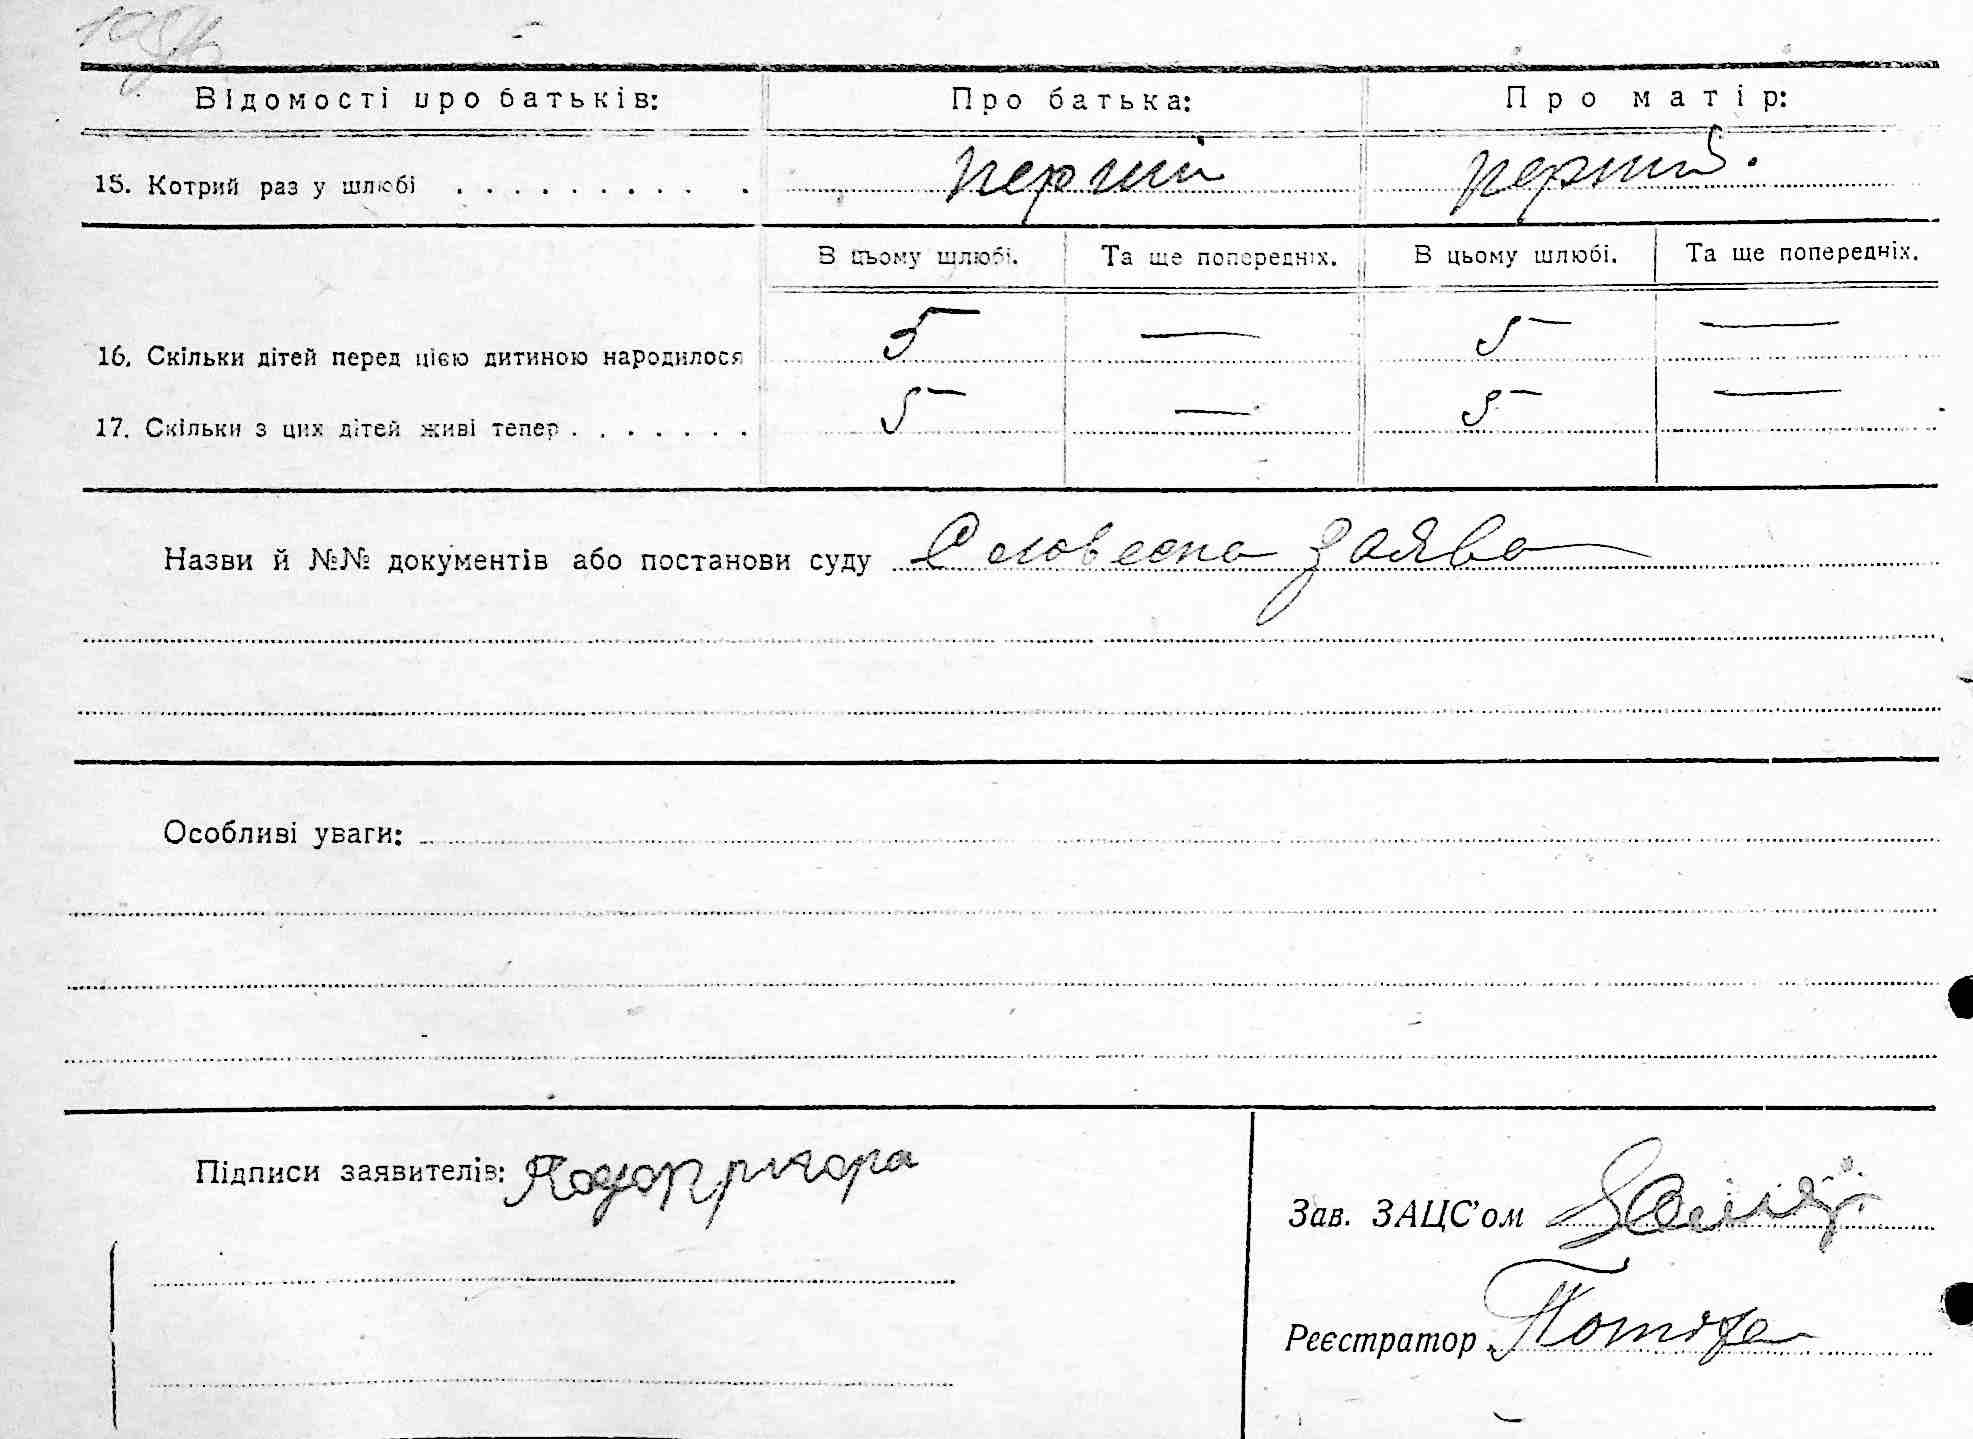 Відомості про батьків: Про батька: Про матір:
15. Котрий раз у шлюбі . . . . . . . . . . перший перший.
В цьому шлюбі. Та ще попередніх. В цьому шлюбі. Та ще попередніх.
16. Скільки дітей перед цією дитиною народилося 5 — 5 —
17. Скільки з цих дітей живі тепер . . . . . . . 5 — 5 —
Назви й №№ документів або постанови суду Словесна заява
Особливі уваги:
Підписи заявителів:
Зав. ЗАЦС'ом
Реєстратор